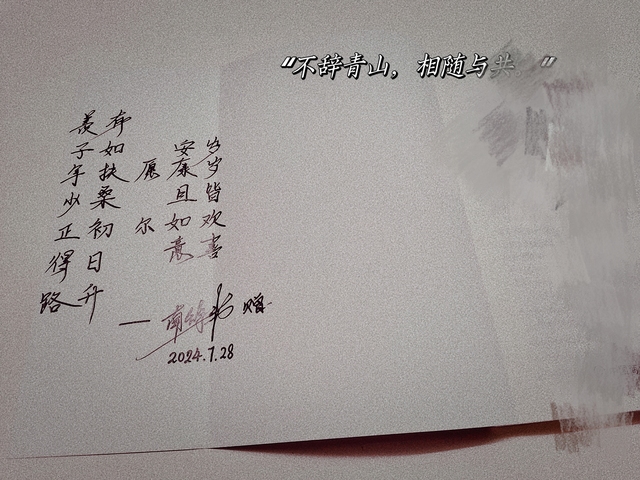 "不辞青山，相随与共"
羡子年少正得路
有如扶桑初日升
愿尔
安康且如意
岁岁皆欢喜
— 赠
2024.7.28